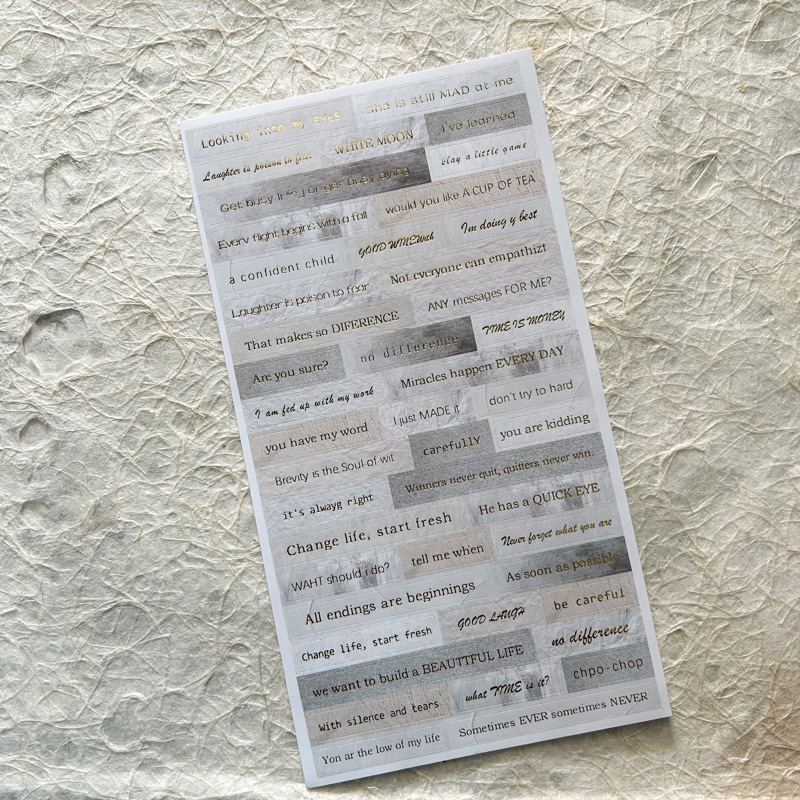 Looking into my EYES
she is still MAD at me
Laughter is poison to fear
WHITE MOON
I've learned
play a little game
Get busy or get busy dying
would you like A CUP OF TEA
Every flight begins with a fall
GOOD WINEwith
Im doing y best
a confident child
Not everyone can empathizt
Laughter is poison to fear
ANY messages FOR ME?
That makes so DIFERENCE
no difference
TIME IS MONEY
Are you sure?
Miracles happen EVERY DAY
I am fed up with my work
I just MADE it
don't try to hard
you have my word
carefullY
you are kidding
Brevity is the Soul of wit
Winners never quit, quitters never win.
it's alwayg right
He has a QUICK EYE
Change life, start fresh
Never forget what you are
WAHT should i do?
tell me when
As soon as possible
All endings are beginnings
GOOD LAUGH
be careful
Change life, start fresh
no difference
we want to build a BEAUTTFUL LIFE
chpo-chop
what TIME is it?
With silence and tears
Sometimes EVER sometimes NEVER
Yon ar the low of my life